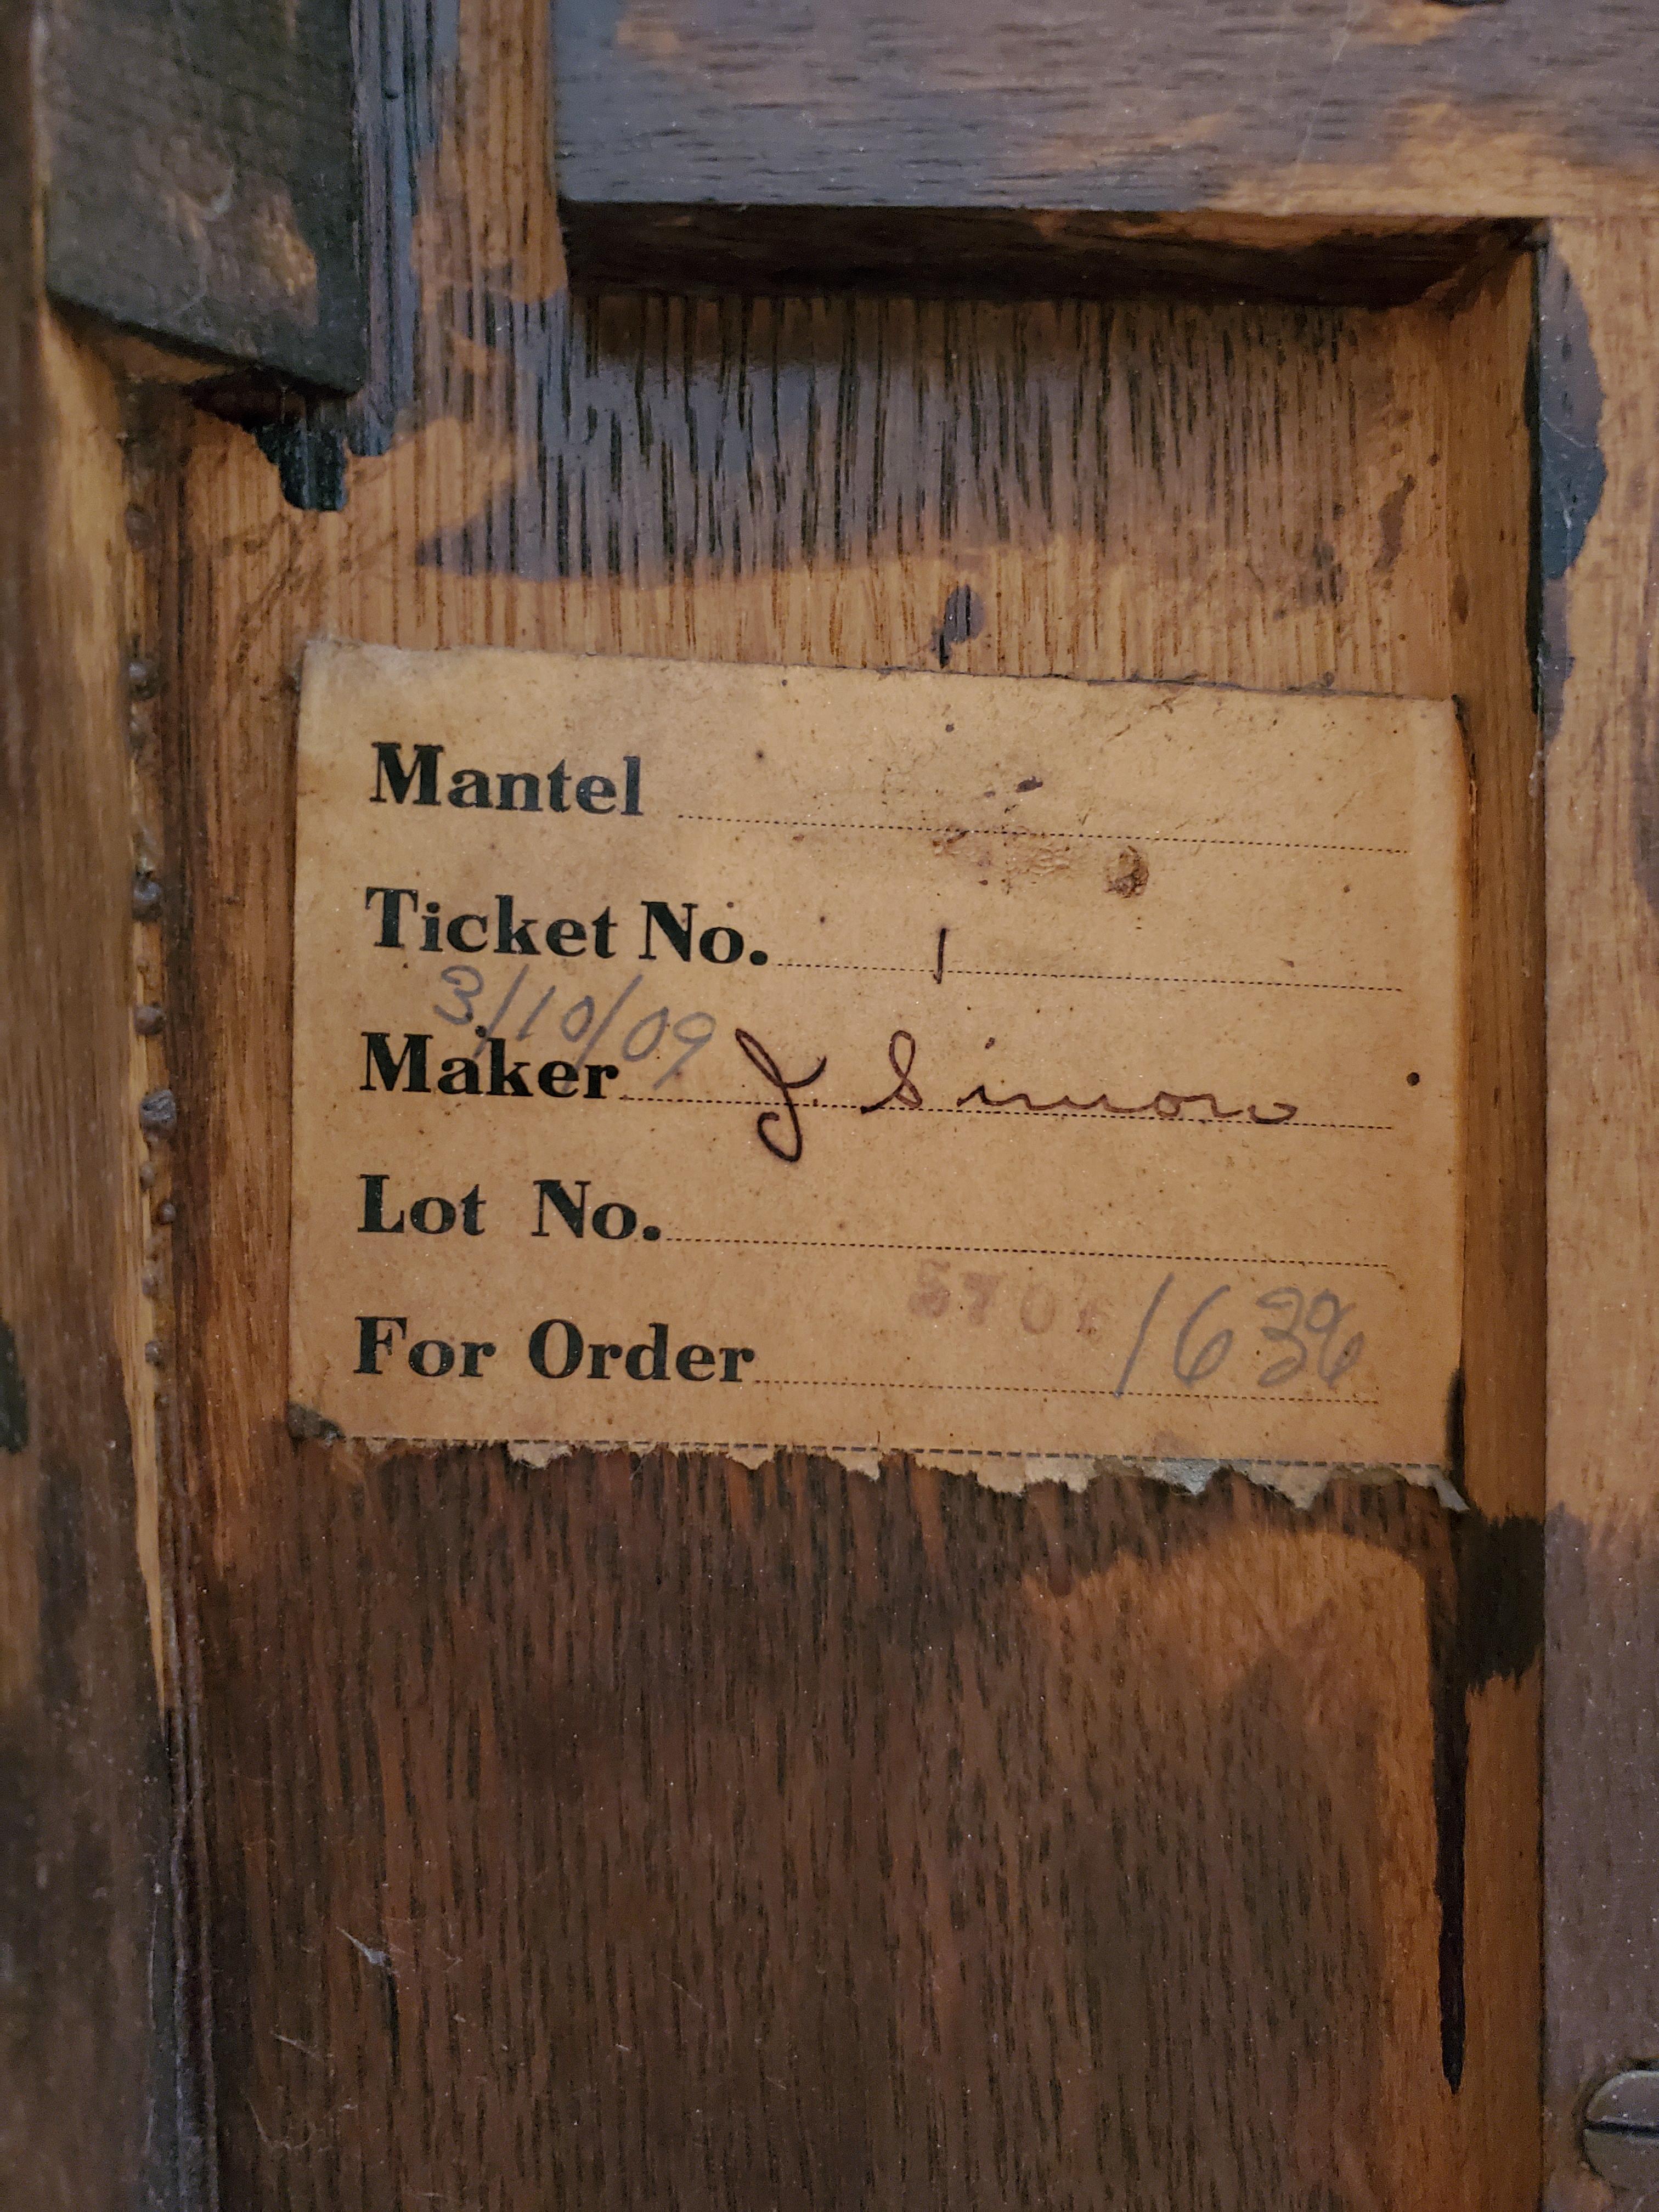 Mantel
Ticket No. 1
3/10/09
Maker J. Simon
Lot No.
For Order 1636